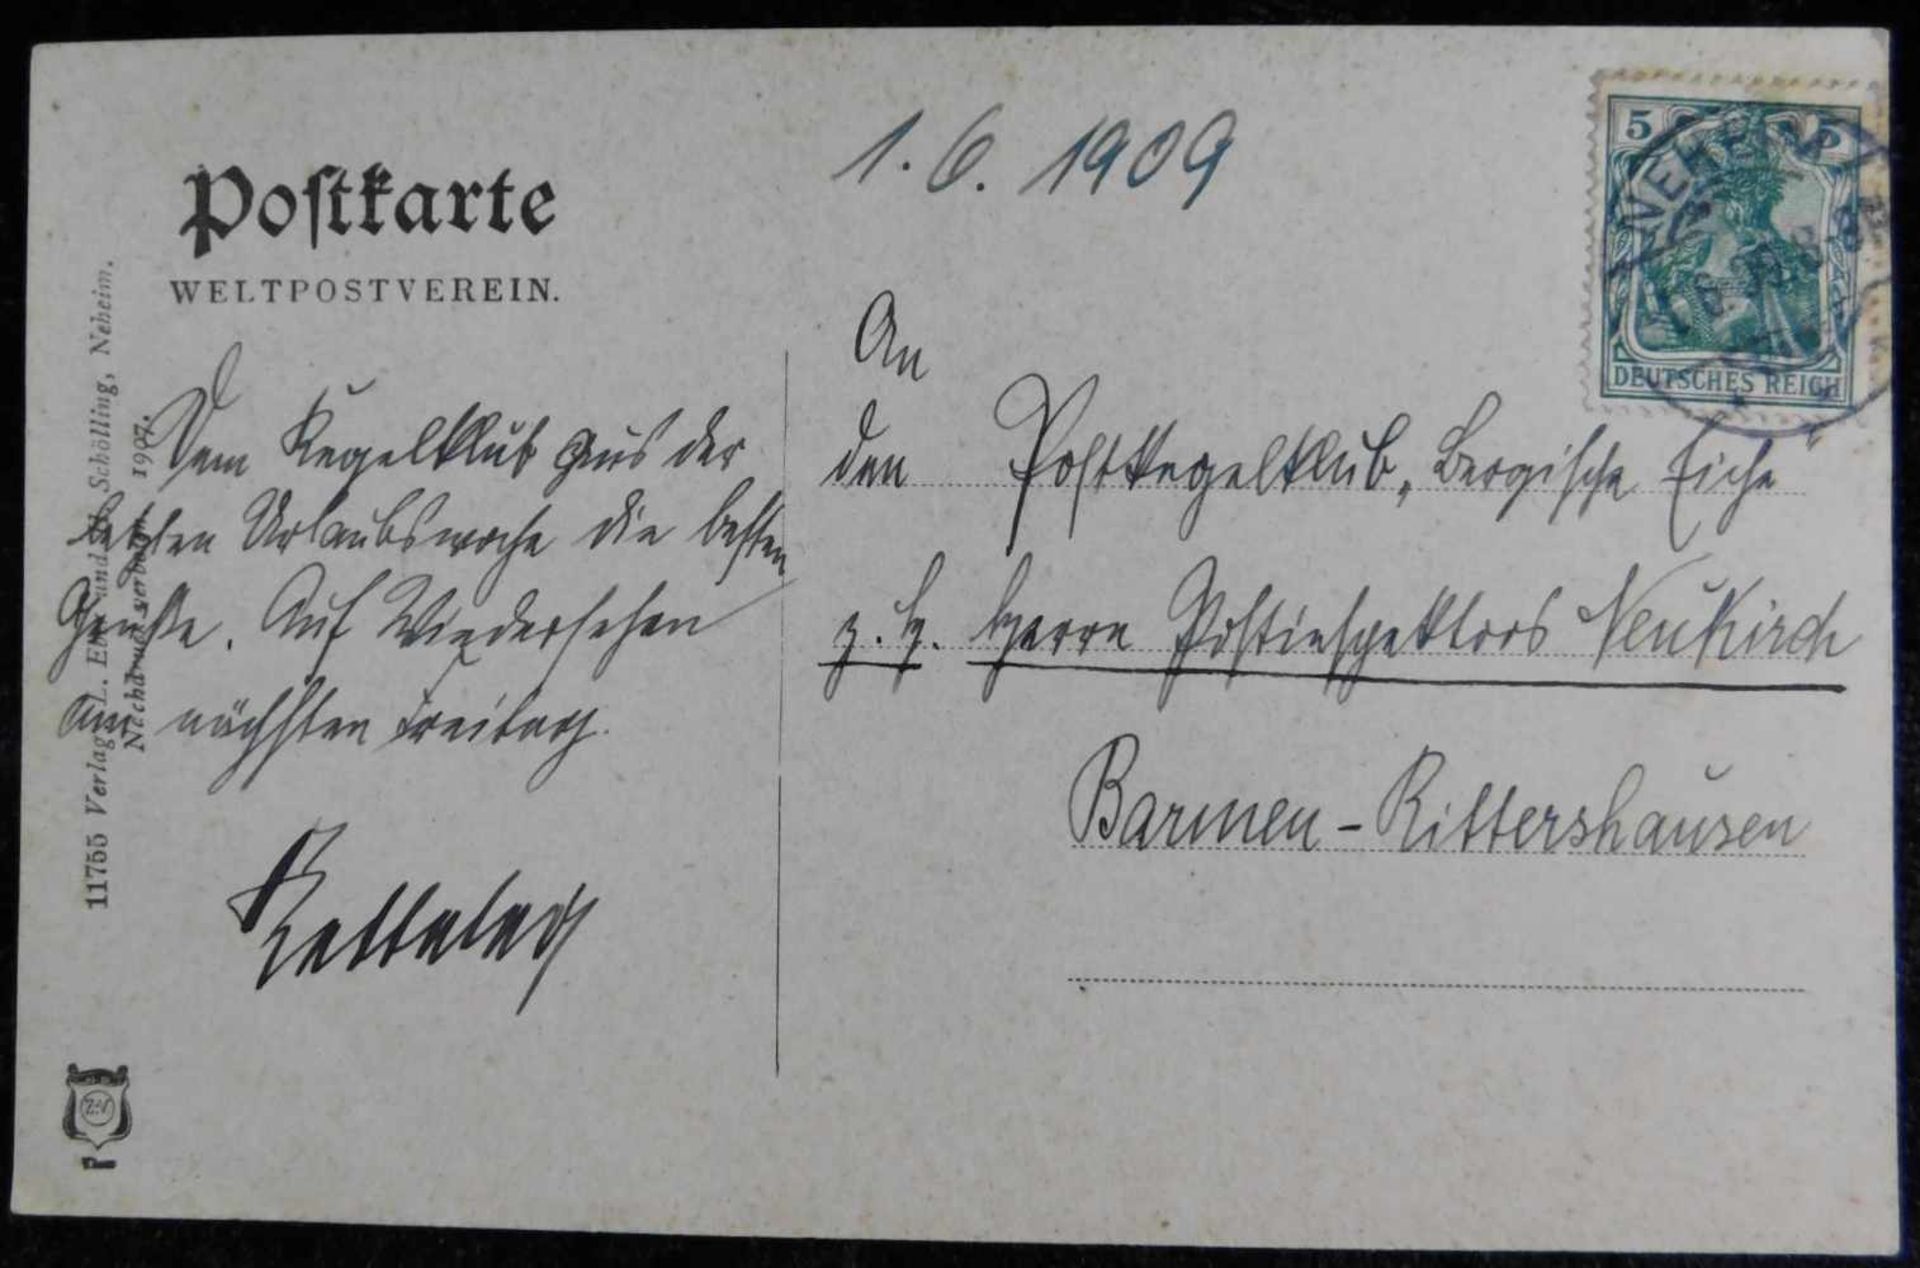 Postkarte
WELTPOSTVEREIN.
1. 6. 1909
5 5
DEUTSCHES REICH
Dem Kegelklub aus der
letzten Urlaubswoche die besten
Grüße. Auf Wiedersehen
am nächsten Freitag.
An
den Postkegelklub „Bergische Eiche"
z. H. Herrn Postinspektors Neukirch
Barmen-Rittershausen
11755 Verlag L. Ebr und Schölling, Neheim.
Nachdruck verboten 1907.